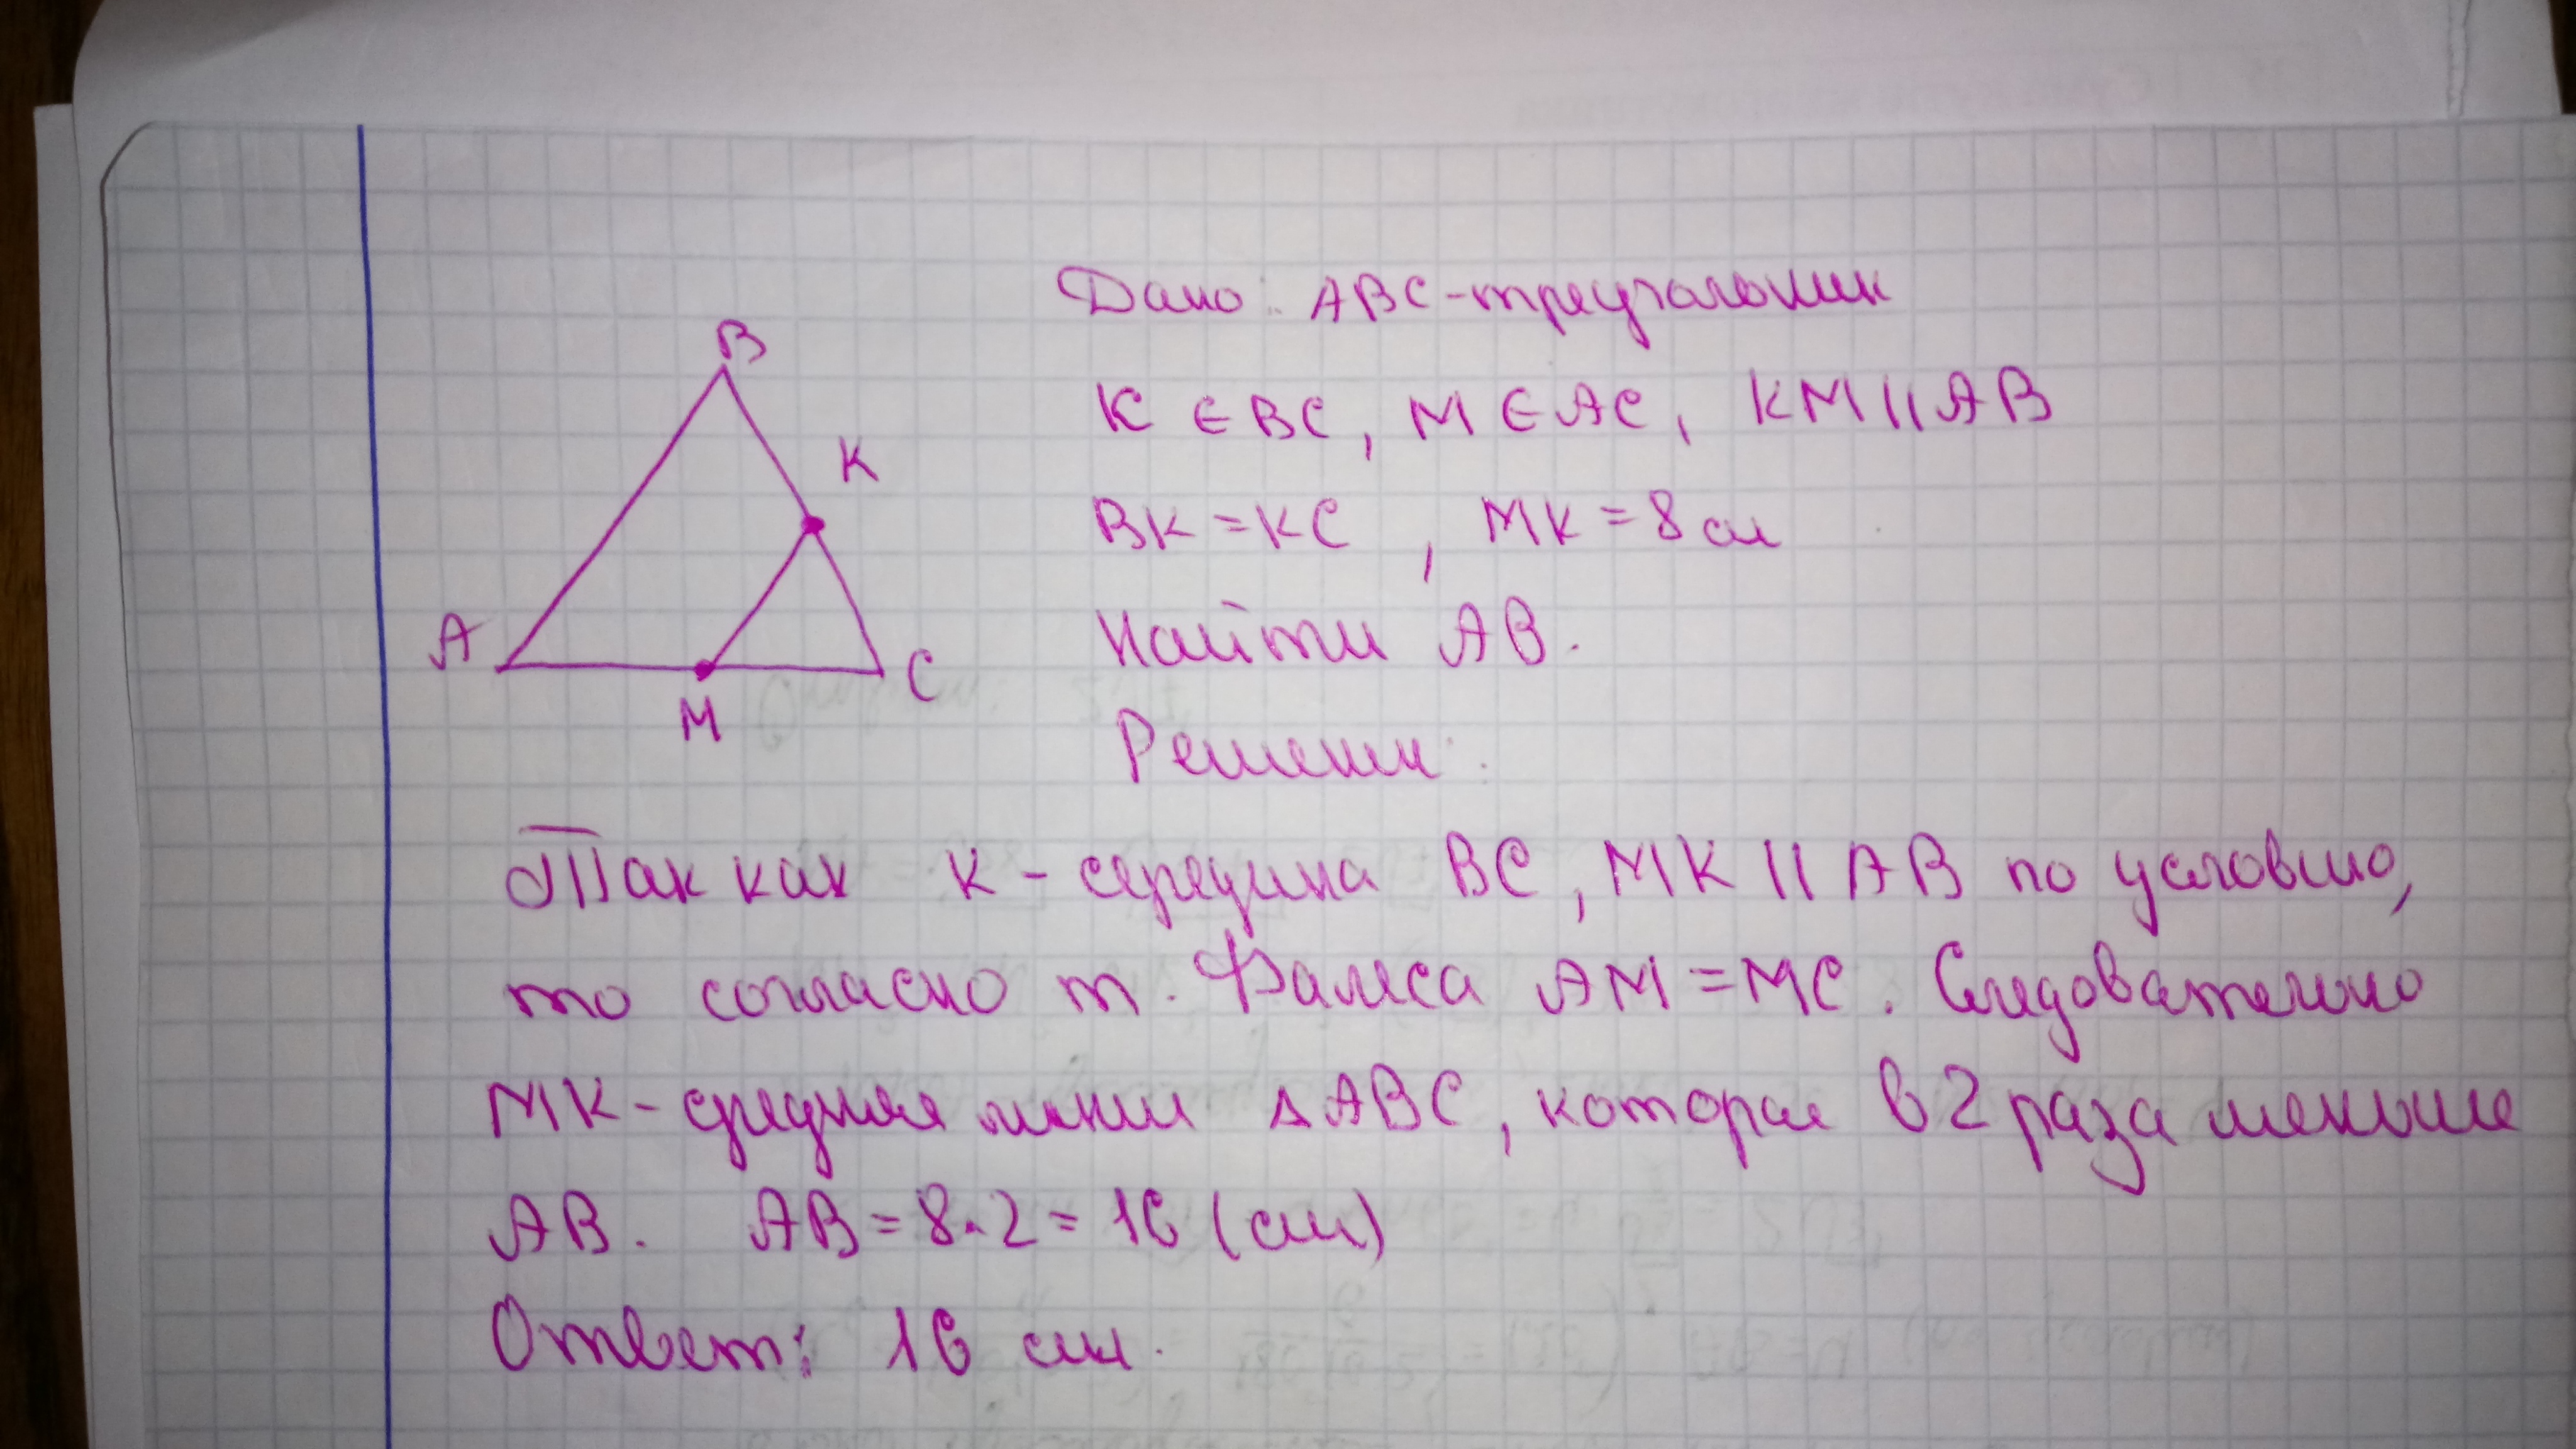 Дано: ABC-треугольник
B
K ∈ BC, M ∈ AC, KM || AB
K
BK = KC, MK = 8 см
A
Найти AB.
C
M
Решение:
Так как K - середина BC, MK || AB по условию,
то согласно т. Фалеса AM = MC. Следовательно
MK - средняя линия ΔABC, которая в 2 раза меньше
AB. AB = 8·2 = 16 (см)
Ответ: 16 см.